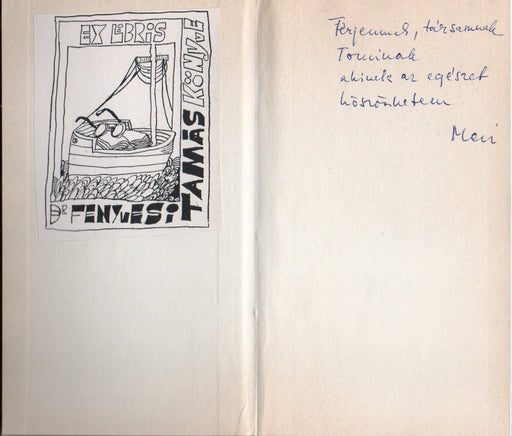 EX LIBRIS
DR FENYVESI
TAMÁS KÖNYVE
Férjemnek, társamnak
Tominak
akinek az egészet
köszönhetem
Mari